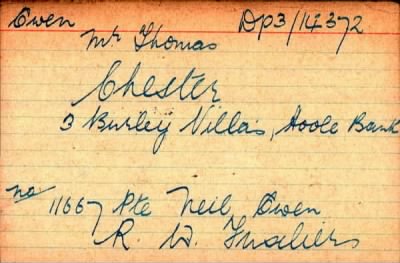 Owen DP3/14372
Mr Thomas
Chester
3 Burley Villas, Hoole Bank
No 11667 Pte Neil Owen
R. W. Fusiliers